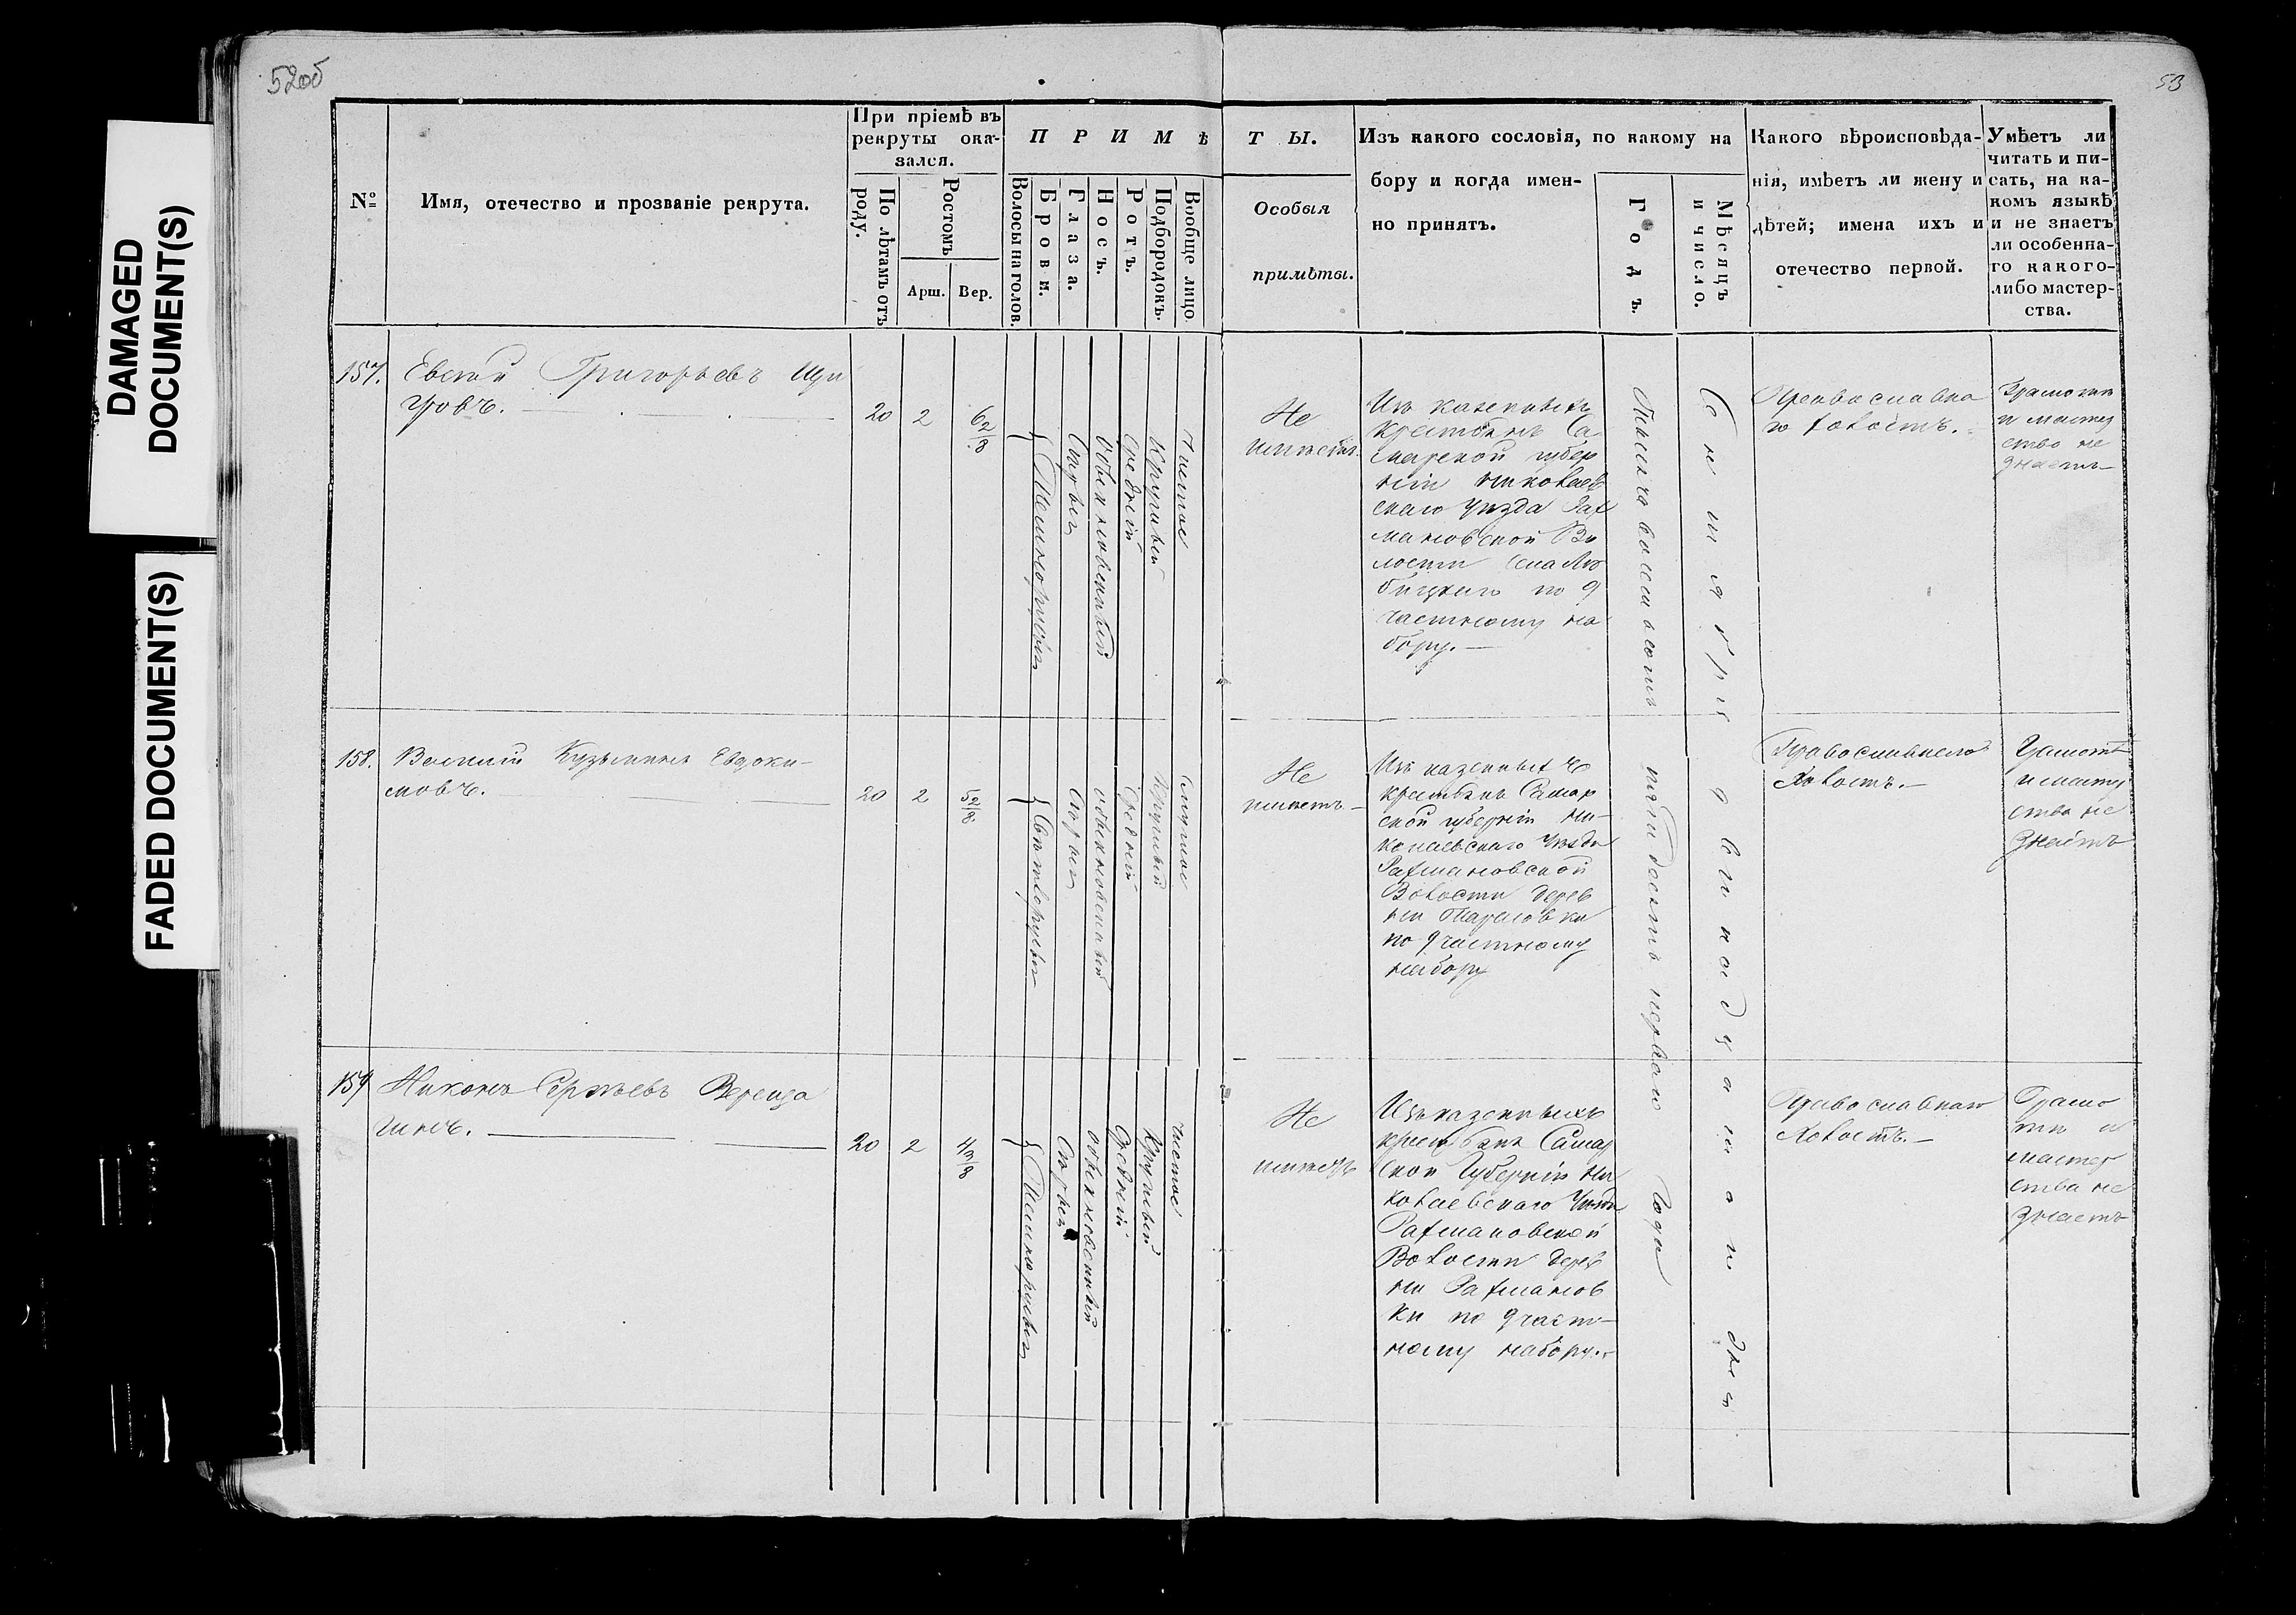 DAMAGED
DOCUMENT(S)
FADED DOCUMENT(S)
52об
53
№
Имя, отечество и прозваніе рекрута.
При пріемѣ въ
рекруты ока-
зался.
По лѣтамъ отъ
роду.
Ростомъ
Арш.
Вер.
ПРИМѢ
Волосы на голов.
Брови.
Глаза.
Носъ.
Ротъ.
Подбородокъ.
Вообще лицо.
ТЫ.
Особыя
примѣты.
Изъ какого сословія, по какому на
бору и когда имен-
но принятъ.
Годъ.
Мѣсяцъ
и число.
Какого вѣроисповѣда-
нія, имѣетъ ли жену и
дѣтей; имена ихъ и
отечество первой.
Умѣетъ ли
читать и пи-
сать, на ка-
комъ языкѣ
и не знаетъ
ли особенна-
го какого-
либо мастер-
ства.
157.
Григорьевъ
20
2
6 2/8
Темнорусыя
Сѣрыя
обыкновенный
средній
Круглый
Чистое
Не
имѣетъ
Изъ казенныхъ
крестьянъ Са
марской губер
ніи Николаев
скаго уѣзда Рах
мановской Во
лости Села
по 9
частному на
бору. —
Тысяча восемьсотъ пятьдесятъ перваго года
Сентября двѣнадцатаго дня
Православна
го холостъ. —
Грамоты
и мастер
ства не
знаетъ
158.
Василій Кузьминъ Евдоки-
мовъ.
20
2
5 2/8
Свѣтлорусыя
Сѣрыя
обыкновенный
средній
Круглый
Смуглое
Не
имѣетъ —
Изъ казенныхъ
крестьянъ Самар
ской губерніи Ни-
колаевскаго Уѣзда
Рахмановской
Волости дерев
ни Тарасовки
по 9 частному
набору
Православнаго
Холостъ. —
Грамоты
и мастер
ства не
знаетъ
159
Никонъ Сергѣевъ Вереща
гинъ.
20
2
4 3/8
Темнорусыя
Сѣрыя
обыкновенный
средній
Круглый
чистое
Не
имѣетъ
Изъ казенныхъ
крестьянъ Самар
ской Губерніи Ни
колаевскаго Уѣзда
Рахмановской
Волости дерев
ни Рахманов
ки по 9 част-
ному набору. —
Православнаго
Холостъ. —
Грамо
ты и
мастер
ства не
знаетъ